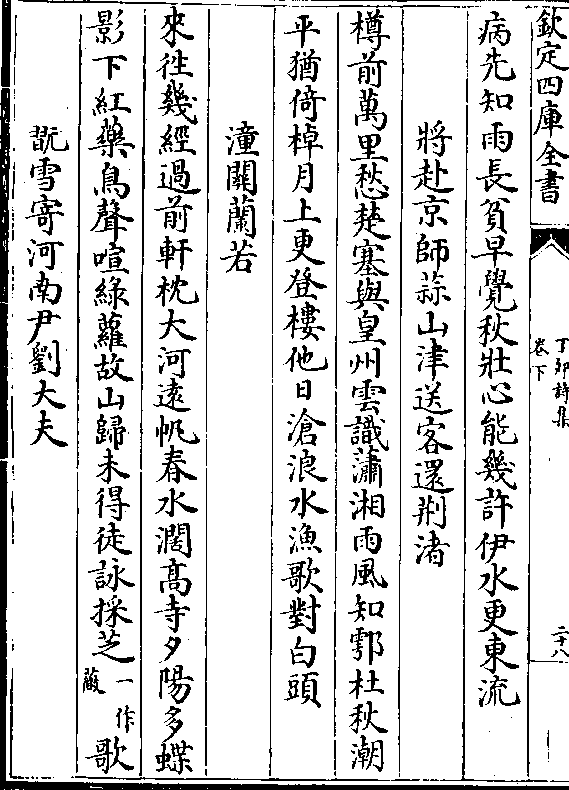 欽定四庫全書
丁卯詩集
卷下
二十八
病先知雨長貧早覺秋壯心能幾許伊水更東流
將赴京師蒜山津送客還荆渚
樽前萬里愁楚塞與皇州雲識瀟湘雨風知鄠杜秋潮
平猶倚棹月上更登樓他日滄浪水漁歌對白頭
潼關蘭若
來徃幾經過前軒枕大河遠帆春水濶髙寺夕陽多蝶
影下紅藥鳥聲喧綠蘿故山歸未得徒詠採芝一作薇歌
翫雪寄河南尹劉大夫